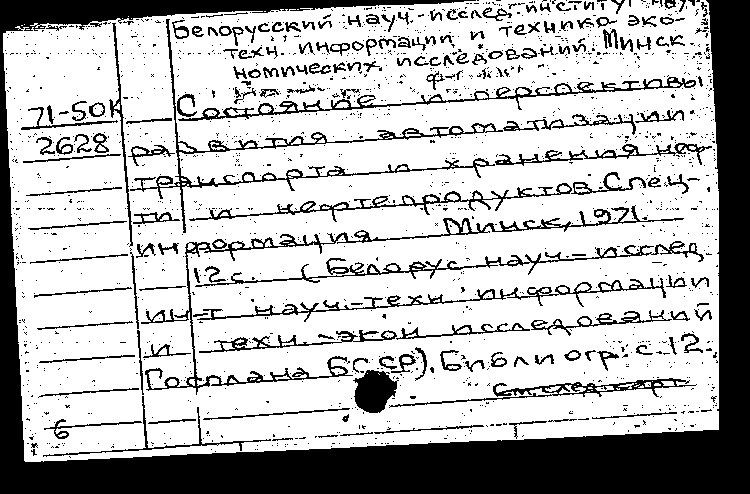 Белорусский науч.-исслед. институт науч.
техн. информации и технико-эко-
номических исследований. Минск
71-50К Состояние и перспективы
2628 развития автоматизации
транспорта и хранения неф-
ти и нефтепродуктов. Спец-
информация. Минск, 1971.
12 с. (Белорус. науч.-исслед.
ин-т науч.-техн. информации
и техн.-экон. исследований
Госплана БССР). Библиогр: с. 12.
См. след. карт
6